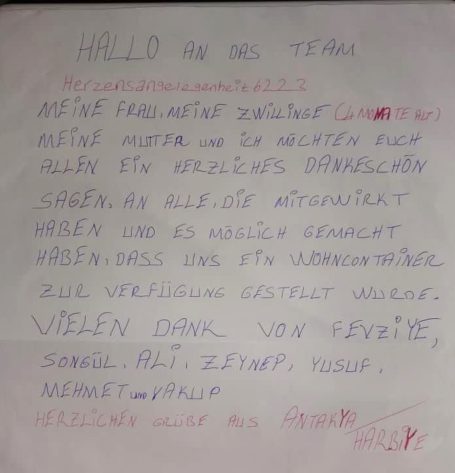 HALLO AN DAS TEAM
Herzensangelegenheit6223
MEINE FRAU, MEINE ZWILLINGE (4 MONATE ALT)
MEINE MUTTER UND ICH MÖCHTEN EUCH
ALLEN EIN HERZLICHES DANKESCHÖN
SAGEN. AN ALLE, DIE MITGEWIRKT
HABEN UND ES MÖGLICH GEMACHT
HABEN, DASS UNS EIN WOHNCONTAINER
ZUR VERFÜGUNG GESTELLT WURDE.
VIELEN DANK VON FEVZİYE,
SONGÜL, ALİ, ZEYNEP, YUSUF,
MEHMET und YAKUP
HERZLICHEN GRÜßE AUS ANTAKYA/
HARBİYE